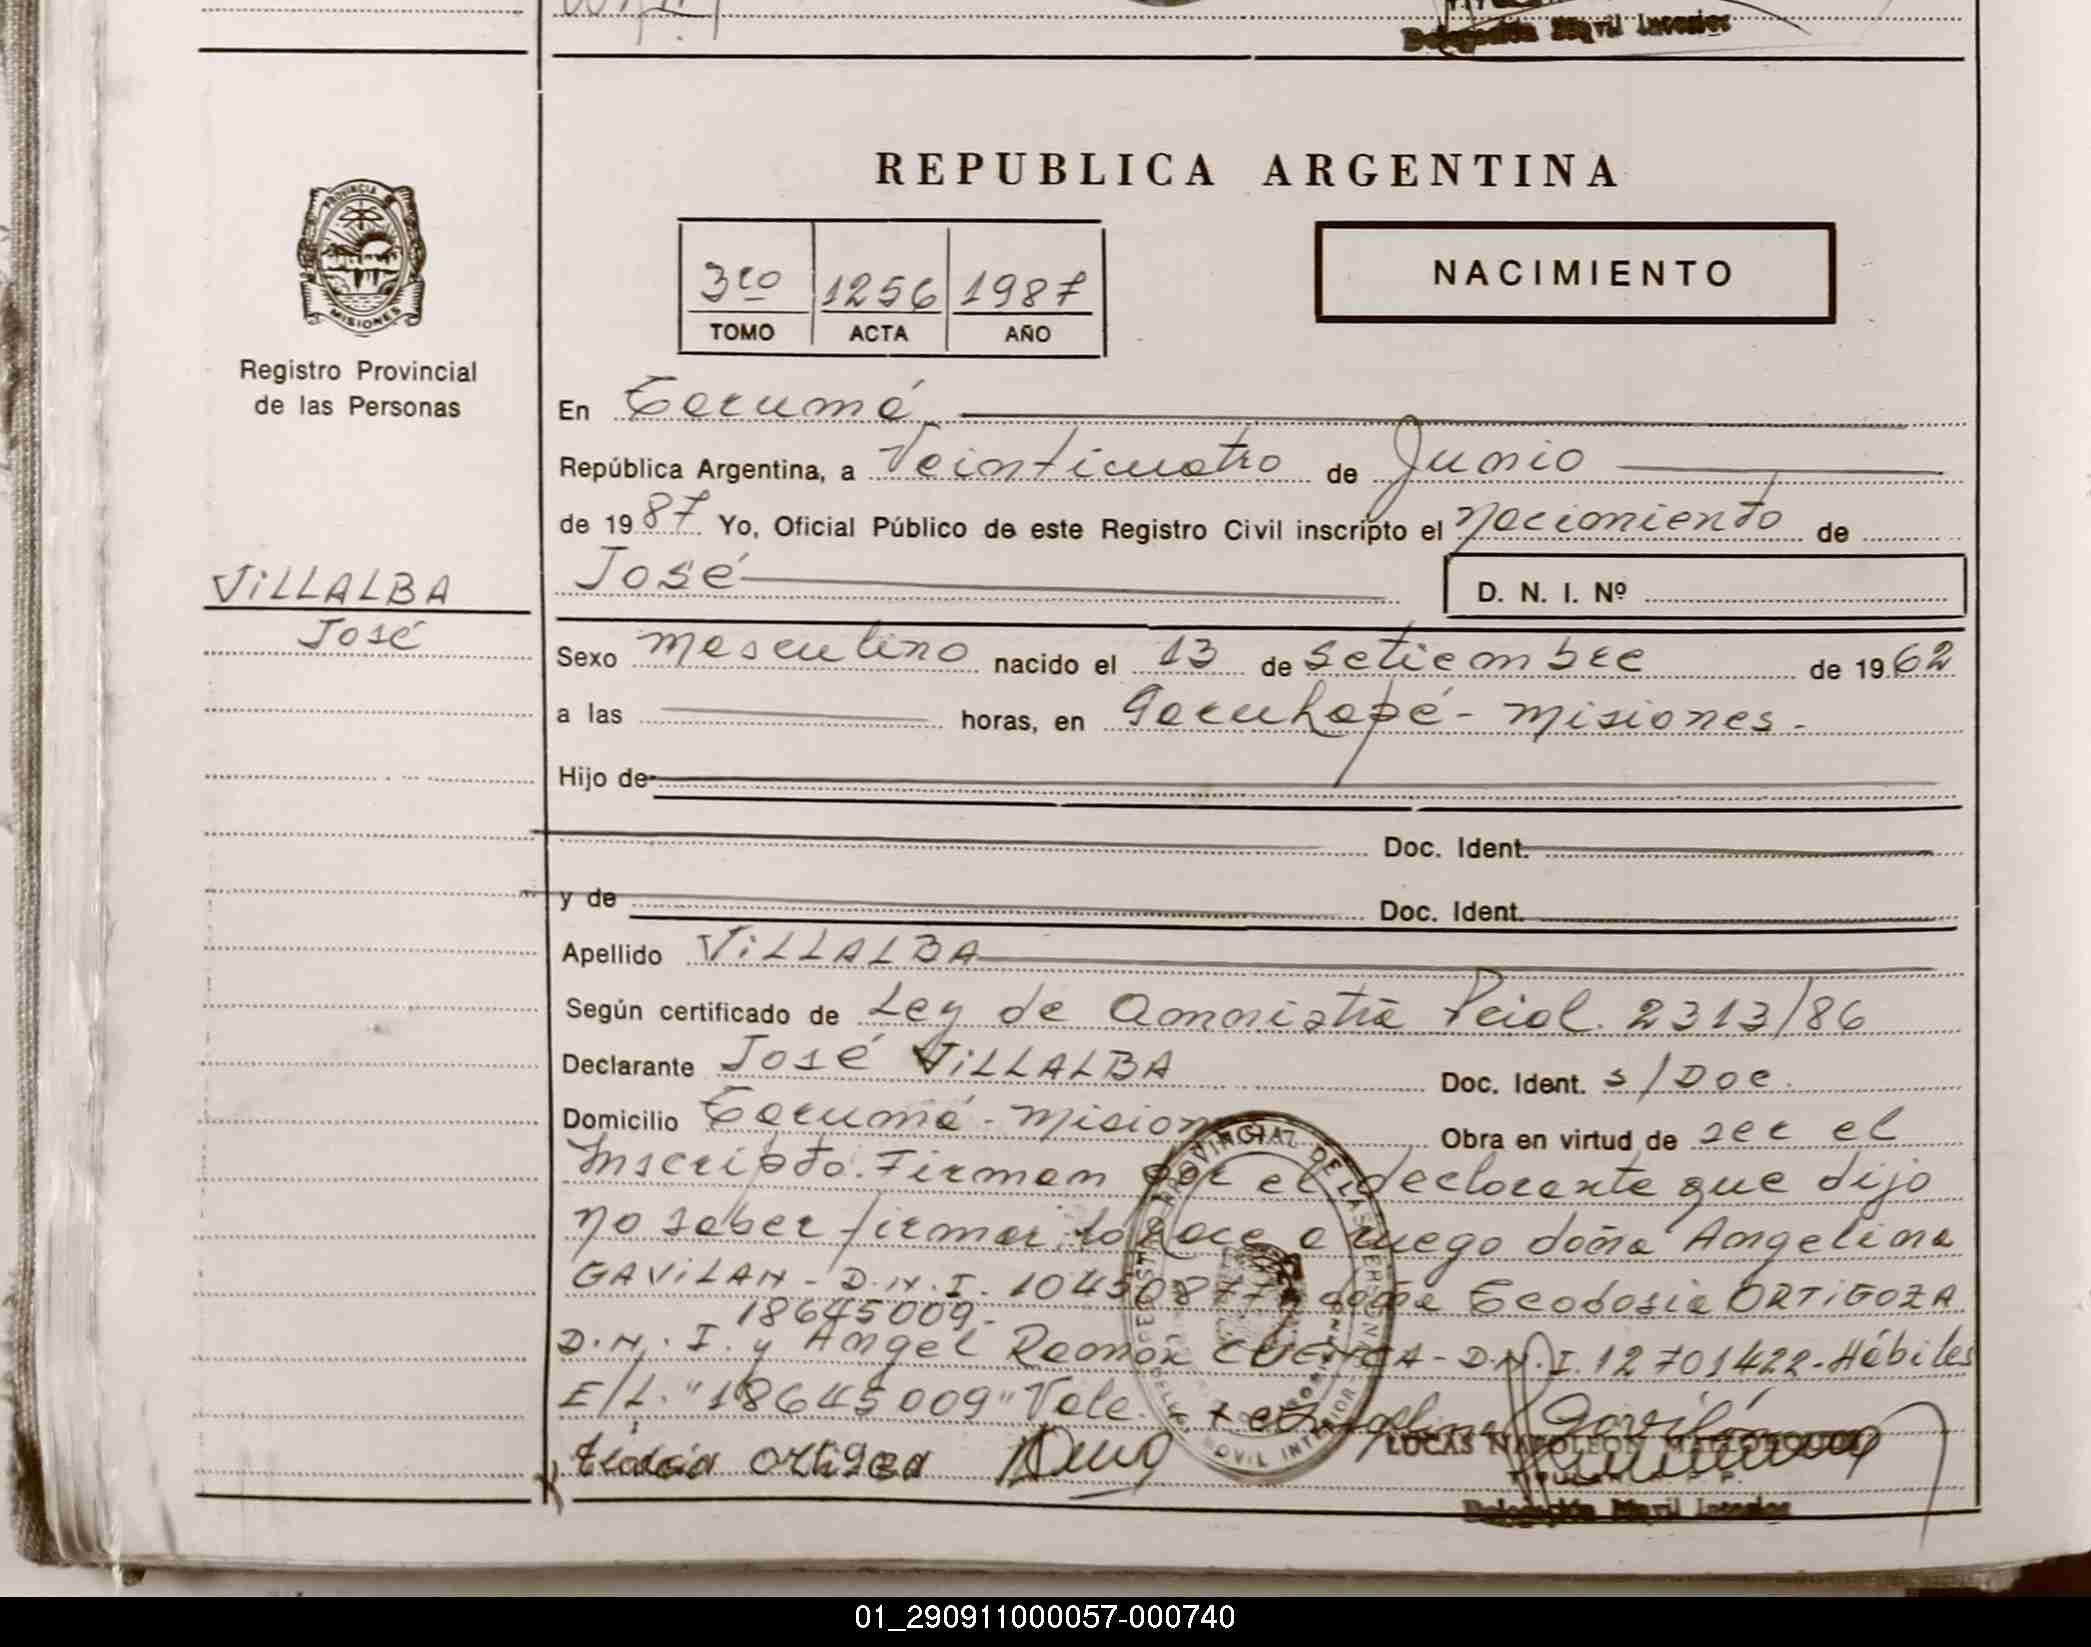 Delegación Movil Interior
REPUBLICA ARGENTINA
PROVINCIA DE
MISIONES
Registro Provincial
de las Personas
3ro 1256 1987
TOMO ACTA AÑO
NACIMIENTO
En Tacumá
República Argentina, a Veinticuatro de Junio
de 1987 Yo, Oficial Público de este Registro Civil inscripto el nacimiento de
José
D. N. I. Nº
VILLALBA
José
Sexo masculino nacido el 13 de setiembre de 1962
a las horas, en Garuhapé - Misiones -
Hijo de
Doc. Ident.
y de Doc. Ident.
Apellido VILLALBA
Según certificado de Ley de Amnistia Pcial. 2313/86
Declarante José VILLALBA Doc. Ident. s/Doc.
Domicilio Tacumá - Mision Obra en virtud de ser el
Inscripto. Firman por el declarante que dijo
no saber firmar, lo hace a ruego doña Angelina
GAVILAN - D.N.I. 10450877 doña Teodosia ORTIGOZA
18645009 -
D.N.I. y Angel Ramon CUENCA - D.N.I. 12701422 - Hábiles
E/L. "18645009" Vale.
Angelina Gavilán
ortigoza
LUCAS NAPOLEON
TITULAR
Delegación Movil Interior
REGISTRO PROVINCIAL DE LAS PERSONAS
MOVIL INTERIOR
01_290911000057-000740